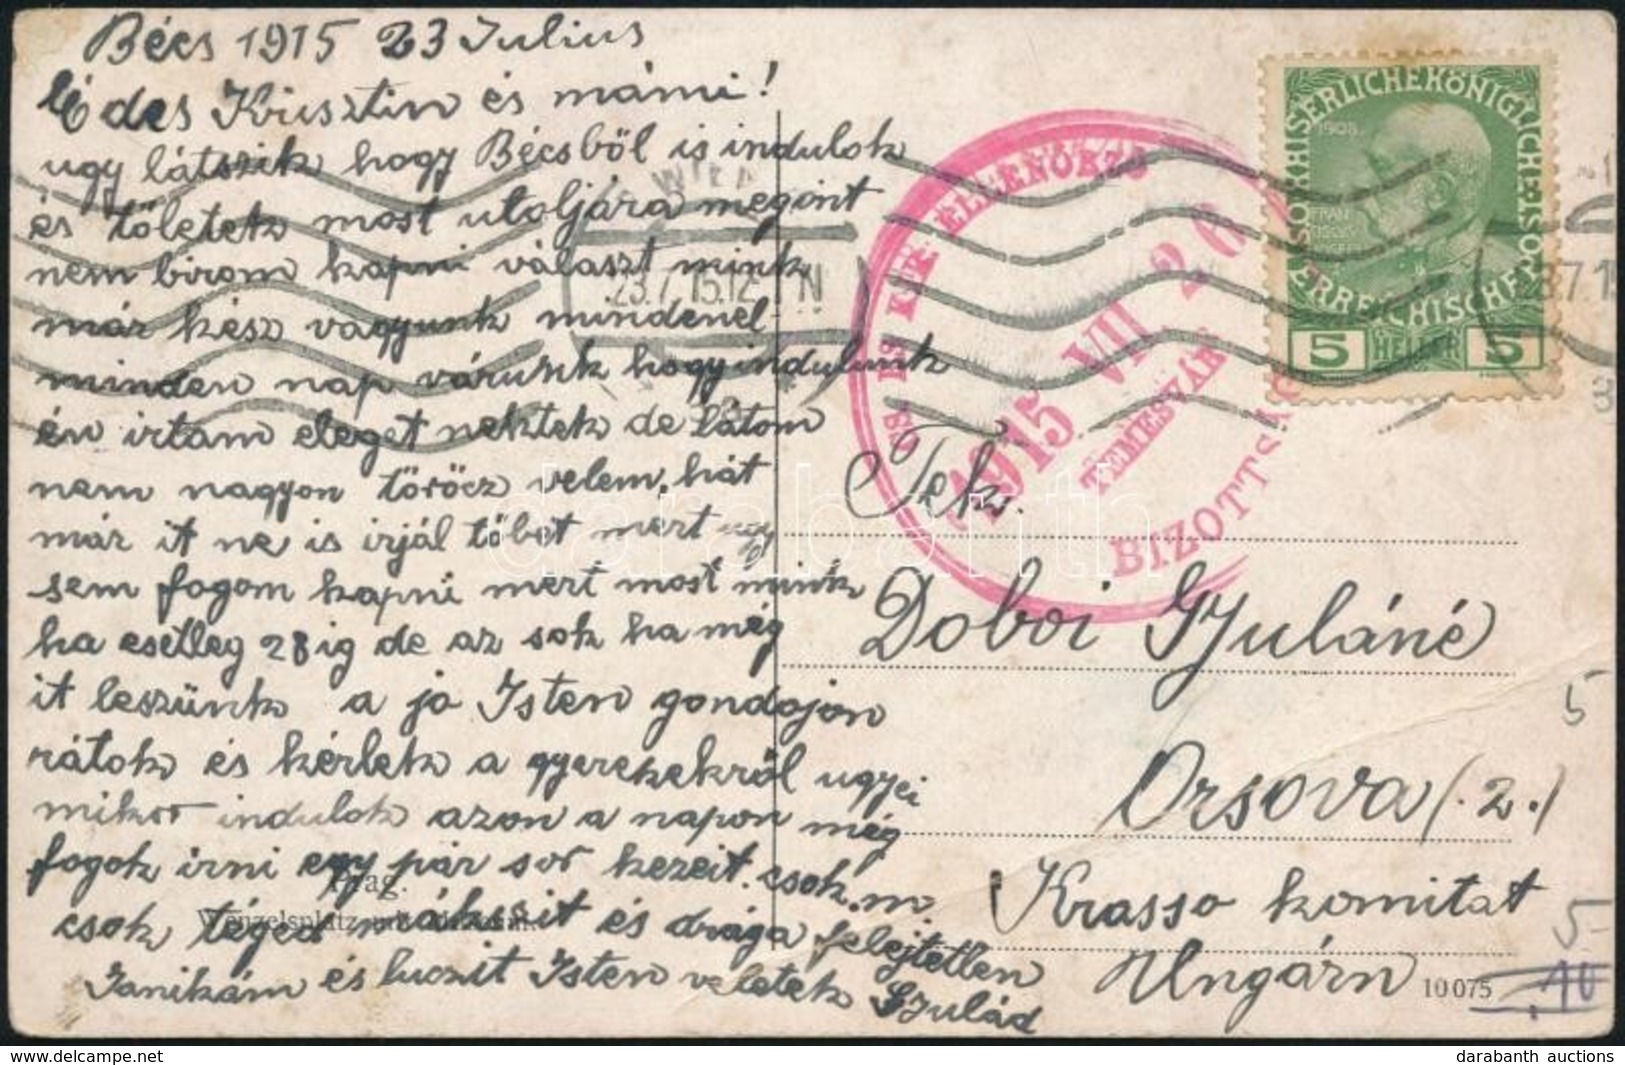 Bécs 1915 23 Julius
Édes Krisztin és mámi!
ugy látszik hogy Bécsből is indulok
és tőletek most utoljára megint
nem birom kapni választ mink
már kész vagyunk mindenel
minden nap várusik hogy indulunk
én irtam eleget nektek de látom
nem nagyon töröcz velem, hát
már it ne is irjál töbet mert ugy
sem fogom kapni mert most mink
ha esetleg 28 ig de az sok ha még
it leszünk a jo Isten gondojon
rátok és kérlek a gyerekekről ugyei
mikor indulok azon a napon még
fogok irni egy pár sor kezeit. csok. m.
csok téged és drága felejtetlen
Janikám és luczit Isten veletek Gyulád
Prag.
Wenzelsplatz
WIEN
23.7.15.12
ELLENŐRZŐ
BIZOTTSÁG
1915 VII 26
TEMESVÁR
KAISERLICHEKÖNIGLICHE
ÖSTERREICHISCHE POST
1908
FRANZ
JOSEF
5 HELLER 5
Tek.
Doboi Gyuláné
Orsova (. 2.)
Krasso komitat
Ungárn
10075
5
5
10
darabanth
darabanth auctions